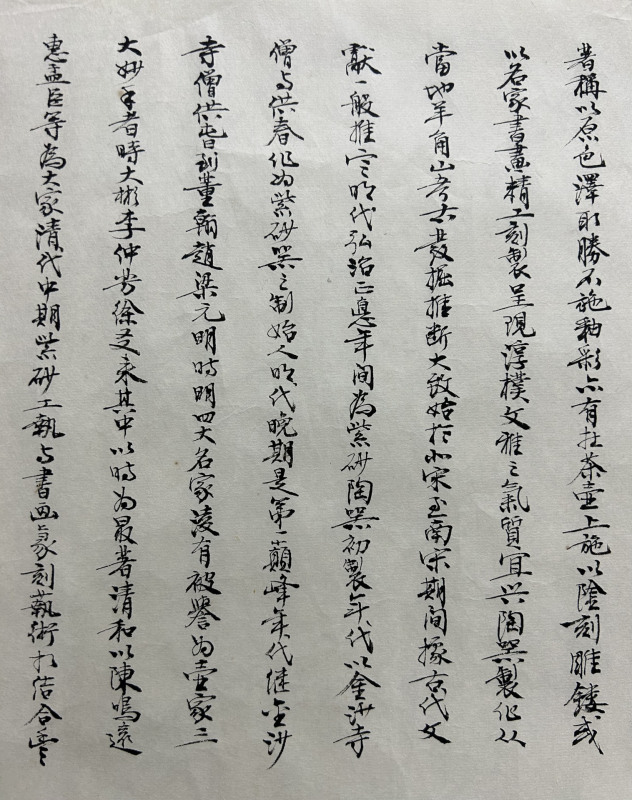 著稱以原色澤取勝不施釉彩亦有在茶壺上施以陰刻雕鏤或
以名家書畫精工刻製呈現淳樸文雅之氣質宜兴陶器製作从
當地羊角山考古發掘推斷大致始於北宋至南宋期間據古代文
獻一般推定明代弘治正德年间為紫砂陶器初製年代以金沙寺
僧与供春作为紫砂器之制始人明代晚期是第一巔峰年代继金沙
寺僧供春到董翰趙梁元暢時朋四大名家後有被譽为壶家三
大妙手者時大彬李仲芳徐友泉其中以時为最著清初以陳鳴遠
惠孟臣等為大家清代中期紫砂工藝与書画篆刻藝術相结合